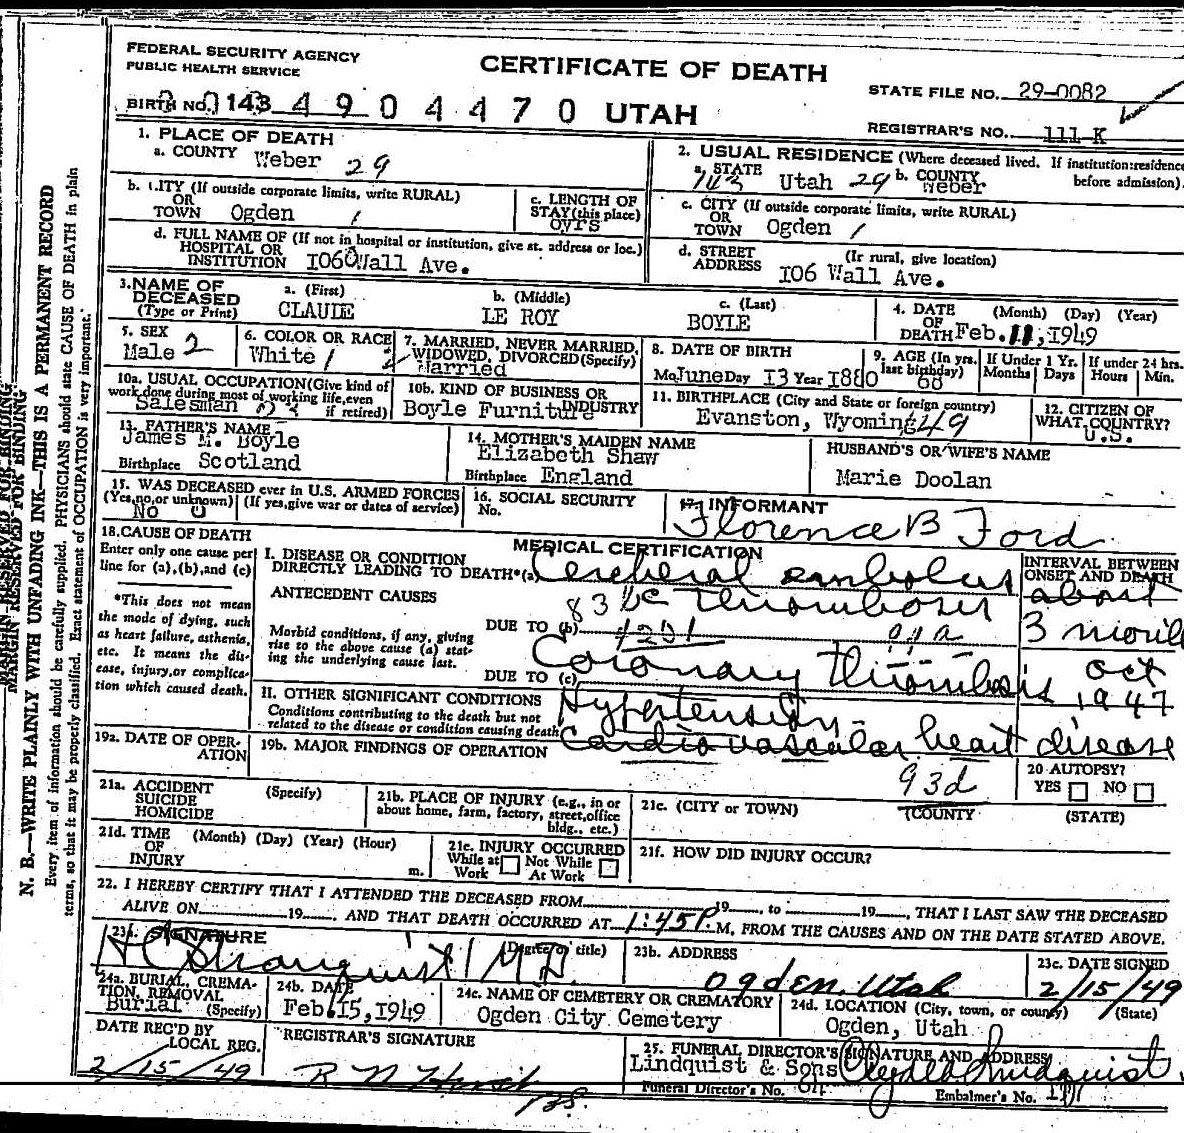 FEDERAL SECURITY AGENCY
PUBLIC HEALTH SERVICE
CERTIFICATE OF DEATH
STATE FILE NO. 29-0082
BIRTH NO. 143 4 9 0 4 4 7 0 UTAH
REGISTRAR'S NO. 111-K
1. PLACE OF DEATH
a. COUNTY Weber 29
b. CITY (If outside corporate limits, write RURAL)
OR
TOWN Ogden 1
c. LENGTH OF
STAY (this place)
6yrs
d. FULL NAME OF (If not in hospital or institution, give st. address or loc.)
HOSPITAL OR
INSTITUTION 106 Wall Ave.
2. USUAL RESIDENCE (Where deceased lived. If institution: residence
before admission).
a. STATE 143 Utah 29 b. COUNTY Weber
c. CITY (If outside corporate limits, write RURAL)
OR
TOWN Ogden 1
d. STREET (Ir rural, give location)
ADDRESS 106 Wall Ave.
3. NAME OF
DECEASED
(Type or Print)
a. (First) b. (Middle) c. (Last)
CLAUDE LE ROY BOYLE
4. DATE (Month) (Day) (Year)
OF
DEATH Feb. 11, 1949
5. SEX
Male 2
6. COLOR OR RACE
White 1
7. MARRIED, NEVER MARRIED,
WIDOWED, DIVORCED (Specify)
2 Married
8. DATE OF BIRTH
Mo June Day 13 Year 1880
9. AGE (In yrs. last birthday) 68
If Under 1 Yr. Months Days
If under 24 hrs. Hours Min.
10a. USUAL OCCUPATION (Give kind of
work done during most of working life, even
if retired)
Salesman
10b. KIND OF BUSINESS OR
INDUSTRY
Boyle Furniture
11. BIRTHPLACE (City and State or foreign country)
Evanston, Wyoming 49
12. CITIZEN OF
WHAT COUNTRY?
U.S.
13. FATHER'S NAME
James M. Boyle
Birthplace Scotland
14. MOTHER'S MAIDEN NAME
Elizabeth Shaw
Birthplace England
HUSBAND'S OR WIFE'S NAME
Marie Doolan
15. WAS DECEASED ever in U.S. ARMED FORCES
(Yes, no, or unknown) (If yes, give war or dates of service)
No 0
16. SOCIAL SECURITY
No.
17. INFORMANT
Florence B Ford
18. CAUSE OF DEATH
Enter only one cause per
line for (a), (b), and (c)
*This does not mean
the mode of dying, such
as heart failure, asthenia,
etc. It means the dis-
ease, injury, or complica-
tion which caused death.
MEDICAL CERTIFICATION
I. DISEASE OR CONDITION
DIRECTLY LEADING TO DEATH*(a) Cerebral embolus
ANTECEDENT CAUSES
83 thrombosis
DUE TO (b) 4201
Morbid conditions, if any, giving
rise to the above cause (a) stat-
ing the underlying cause last.
DUE TO (c) Coronary thrombosis
INTERVAL BETWEEN
ONSET AND DEATH
about
3
Oct
1947
II. OTHER SIGNIFICANT CONDITIONS
Conditions contributing to the death but not
related to the disease or condition causing death
Hypertensity-
Cardiovascular heart disease
19a. DATE OF OPER-
ATION
19b. MAJOR FINDINGS OF OPERATION
93d
20 AUTOPSY?
YES NO
21a. ACCIDENT
SUICIDE
HOMICIDE
(Specify)
21b. PLACE OF INJURY (e.g., in or
about home, farm, factory, street, office
bldg., etc.)
21c. (CITY or TOWN) (COUNTY) (STATE)
21d. TIME (Month) (Day) (Year) (Hour)
OF
INJURY m.
21e. INJURY OCCURRED
While at Not While
Work At Work
21f. HOW DID INJURY OCCUR?
22. I HEREBY CERTIFY THAT I ATTENDED THE DECEASED FROM 19 , to 19 , THAT I LAST SAW THE DECEASED
ALIVE ON 19 , AND THAT DEATH OCCURRED AT 1:45P. M, FROM THE CAUSES AND ON THE DATE STATED ABOVE.
23a. SIGNATURE (Degree or title)
H C Stranquist MD
23b. ADDRESS
Ogden, Utah
23c. DATE SIGNED
2/15/49
24a. BURIAL, CREMA-
TION, REMOVAL
Burial (Specify)
24b. DATE
Feb. 15, 1949
24c. NAME OF CEMETERY OR CREMATORY
Ogden City Cemetery
24d. LOCATION (City, town, or county) (State)
Ogden, Utah
DATE REC'D BY
LOCAL REG.
2/15/49
REGISTRAR'S SIGNATURE
25. FUNERAL DIRECTOR'S SIGNATURE AND ADDRESS
Lindquist & Sons Clyde Lindquist
Funeral Director's No. Embalmer's No.
MARGIN RESERVED FOR BINDING
N. B.—WRITE PLAINLY WITH UNFADING INK—THIS IS A PERMANENT RECORD
Every item of information should be carefully supplied. PHYSICIANS should state CAUSE OF DEATH in plain
terms, so that it may be properly classified. Exact statement of OCCUPATION is very important.